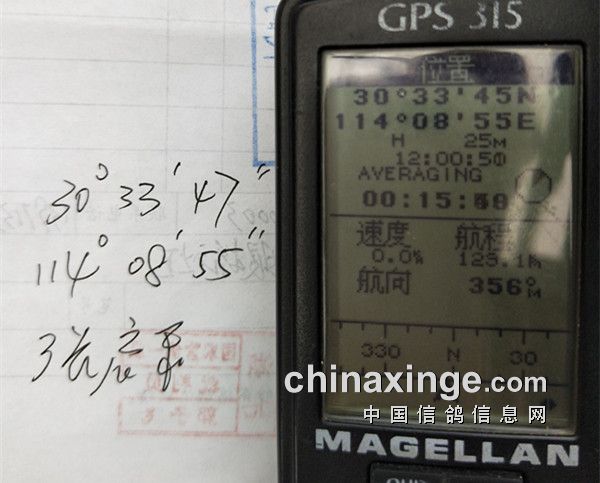 GPS 315
位置
30°33'45N
114°08'55E
H 25M
12:00:50
AVERAGING
00:15:
速度 航程
0.0% 129.1
航向 356°M
330 N 30
MAGELLAN
30° 33' 47"
114° 08' 55"
chinaxinge.com
中国信鸽信息网